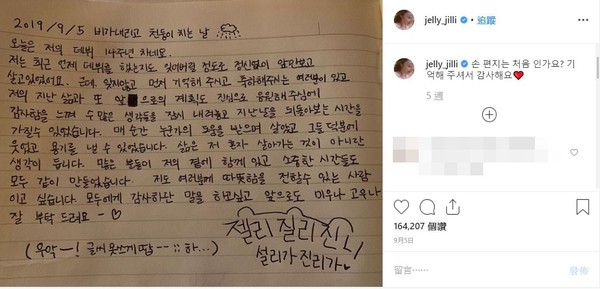 2019/9/5 비가내리고 천둥이 치는 날
오늘은 저의 데뷔 14주년 차네요.
저는 최근 언제 데뷔를 했는지도 잊어버릴 정도로 정신없이 앞만보고
살고있었어요. 근데 잊지않고 먼저 기억해 주시고 축하해주시는 여러분이 있고
저의 지난 삶과 또 앞으로의 계획도 진심으로 응원해주심에
감사함을 느껴 수 많은 생각들을 잠시 내려놓고 지난날을 되돌아보는 시간을
가질수 있었습니다. 매 순간 누군가의 도움을 받으며 살았고 그들 덕분에
웃었고 용기를 낼 수 있었습니다. 삶은 저 혼자 살아가는 것이 아니란
생각이 듭니다. 많은 분들이 저의 곁에 함께 있고 소중한 시간들도
모두 같이 만들었습니다. 저도 여러분께 따뜻함을 전할수 있는 사람
이고 싶습니다. 모두에게 감사하단 말을 하고싶고 앞으로도 미우나 고우나
잘 부탁 드려요 ~ ♡
(우악ㅡ! 글씨 못쓰게땀 -- ;; 하...)
젤리 질리 진리
설리가 진리가
jelly_jilli • 追蹤
jelly_jilli 손 편지는 처음 인가요? 기
억해 주셔서 감사해요❤
5 週
164,207 個讚
9月5日
留言⋯⋯
發佈